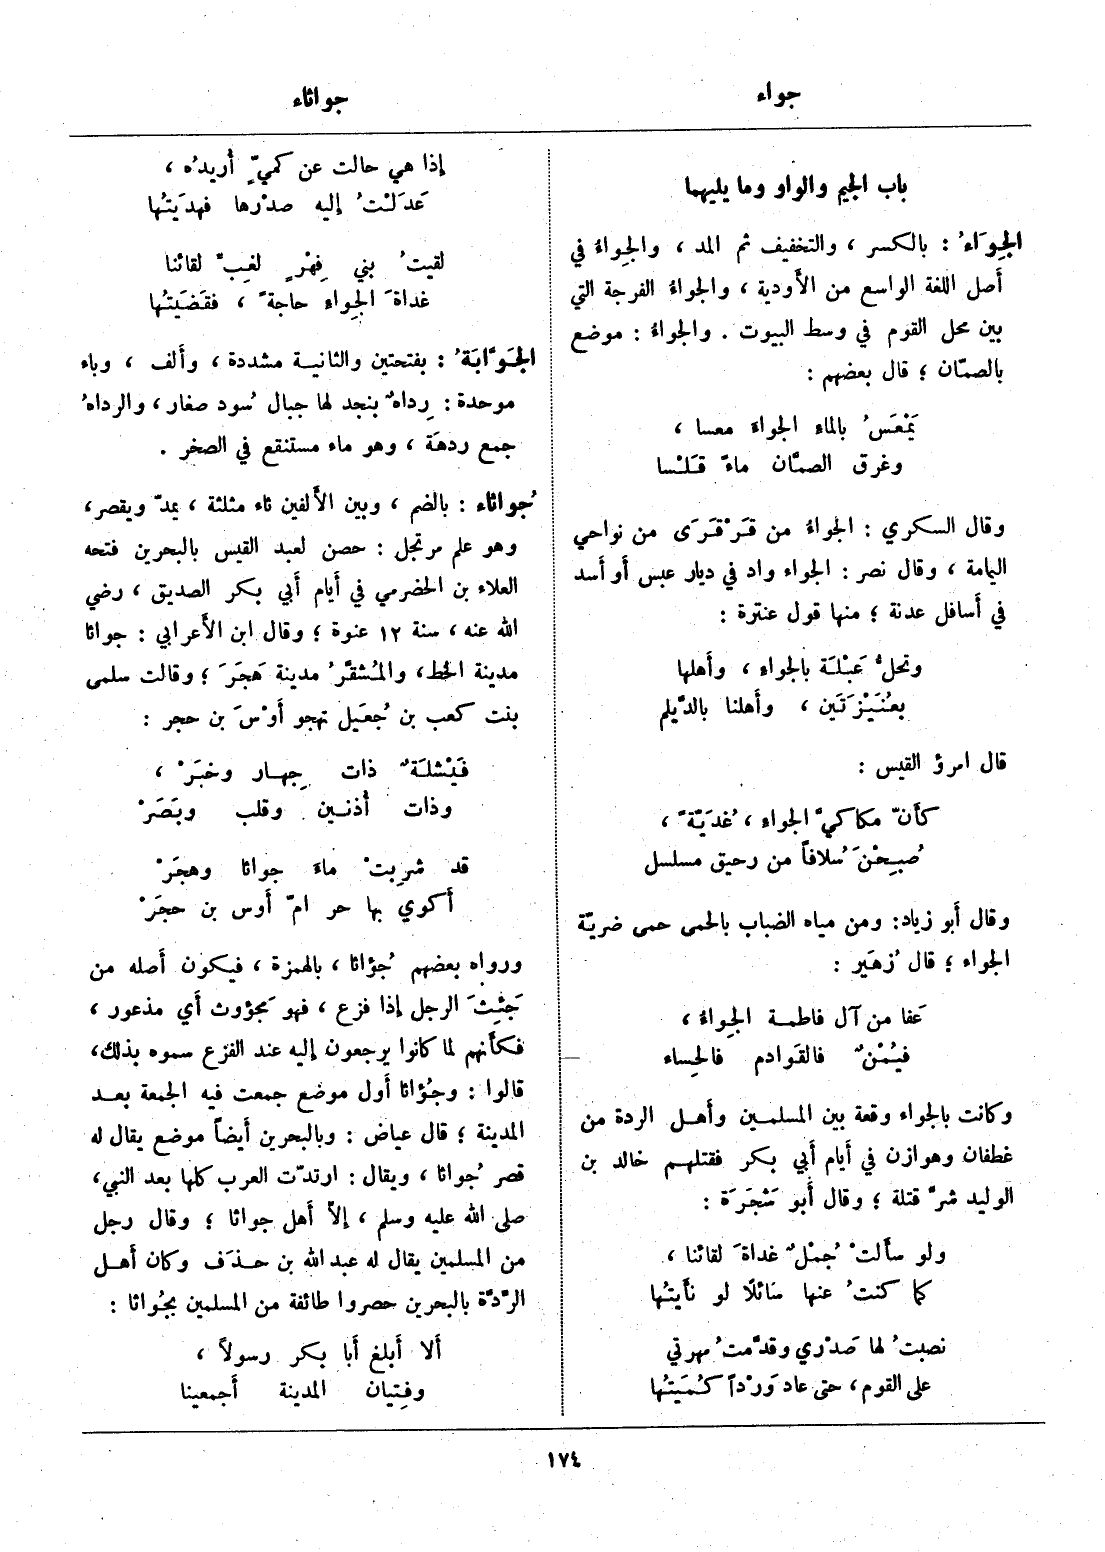 جواء
جواثاء
باب الجيم والواو وما يليهما
الجِوَاءُ : بالكسر ، والتخفيف ثم المد ، والجِواءُ في
أصل اللغة الواسع من الأودية ، والجواءُ الفرجة التي
بين محل القوم في وسط البيوت . والجواءُ : موضع
بالصمّان ؛ قال بعضهم :
يَمْعَسُ بالماء الجواءَ معسا ،
وغرق الصمّان ماءً قَلْسا
وقال السكري : الجواءُ من قَرْقَرَى من نواحي
اليمامة ، وقال نصر : الجواء واد في ديار عبس أو أسد
في أسافل عدنة ؛ منها قول عنترة :
وتحلُّ عَبْلَة بالجواء ، وأهلها
بعُنَيْزَتَين ، وأهلنا بالدَّيلم
قال امرؤ القيس :
كأنّ مكاكيَّ الجواء ، غُدَيّةً ،
صُبِحْنَ سُلافاً من رحيق مسلسل
وقال أبو زياد : ومن مياه الضباب بالحمى حمى ضريّة
الجواء ؛ قال زُهَير :
عَفا من آل فاطمة الجِواءُ ،
فيُمْنٌ فالقَوادم فالحِساء
وكانت بالجواء وقعة بين المسلمين وأهل الردة من
غطفان وهوازن في أيام أبي بكر فقتلهم خالد بن
الوليد شرَّ قتلة ؛ وقال أبو شَجَرَة :
ولو سألتْ جُمْلٌ غداةَ لقائنا ،
كما كنتُ عنها سائلًا لو نأيتُها
نصبتُ لها صَدْري وقدَّمتُ مهرتي
على القوم ، حتى عاد وَرْداً كُمَيتُها
إذا هي حالت عن كميٍّ أُريدُه ،
عَدَلْتُ إليه صدْرها فهدَيتُها
لقيتُ بني فِهْرٍ لغِبِّ لقائنا
غداةَ الجِواء حاجةً ، فقَضَيتُها
الجَوّابَةُ : بفتحتين والثانية مشددة ، وألف ، وباء
موحدة : رِداهٌ بنجد لها جبال سُود صغار ، والرداهُ
جمع ردهَة ، وهو ماء مستنقع في الصخر .
جُواثاء : بالضم ، وبين الألفين ثاء مثلثة ، يمدّ ويقصر ،
وهو علم مرتجل : حصن لعبد القيس بالبحرين فتحه
العلاء بن الحضرمي في أيام أبي بكر الصديق ، رضي
الله عنه ، سنة ١٢ عنوة ؛ وقال ابن الأعرابي : جواثا
مدينة الخط ، والمُشقَّرُ مدينة هَجَرَ ؛ وقالت سلمى
بنت كعب بن جُعَيل تهجو أوْسَ بن حجر :
فَيْشلَةٌ ذات جِهار وخبَرْ ،
وذات أُذنين وقلب وبَصَرْ
قد شرِبتْ ماءَ جواثا وهجَرْ
أكوي بها حر امّ أوس بن حجَرْ
ورواه بعضهم جُؤاثا ، بالهمزة ، فيكون أصله من
جَئِثَ الرجل إذا فزع ، فهو مَجؤوث أي مذعور ،
فكأنهم لما كانوا يرجعون إليه عند الفزع سموه بذلك ،
قالوا : وجُؤاثا أول موضع جمعت فيه الجمعة بعد
المدينة ؛ قال عياض : وبالبحرين أيضاً موضع يقال له
قصر جُواثا ، ويقال : ارتدّت العرب كلها بعد النبي ،
صلى الله عليه وسلم ، إلاّ أهل جواثا ؛ وقال رجل
من المسلمين يقال له عبد الله بن حذَف وكان أهل
الرّدّة بالبحرين حصروا طائفة من المسلمين بجُواثا :
ألا أبلغ أبا بكر رسولاً ،
وفِتيان المدينة أجمعينا
١٧٤